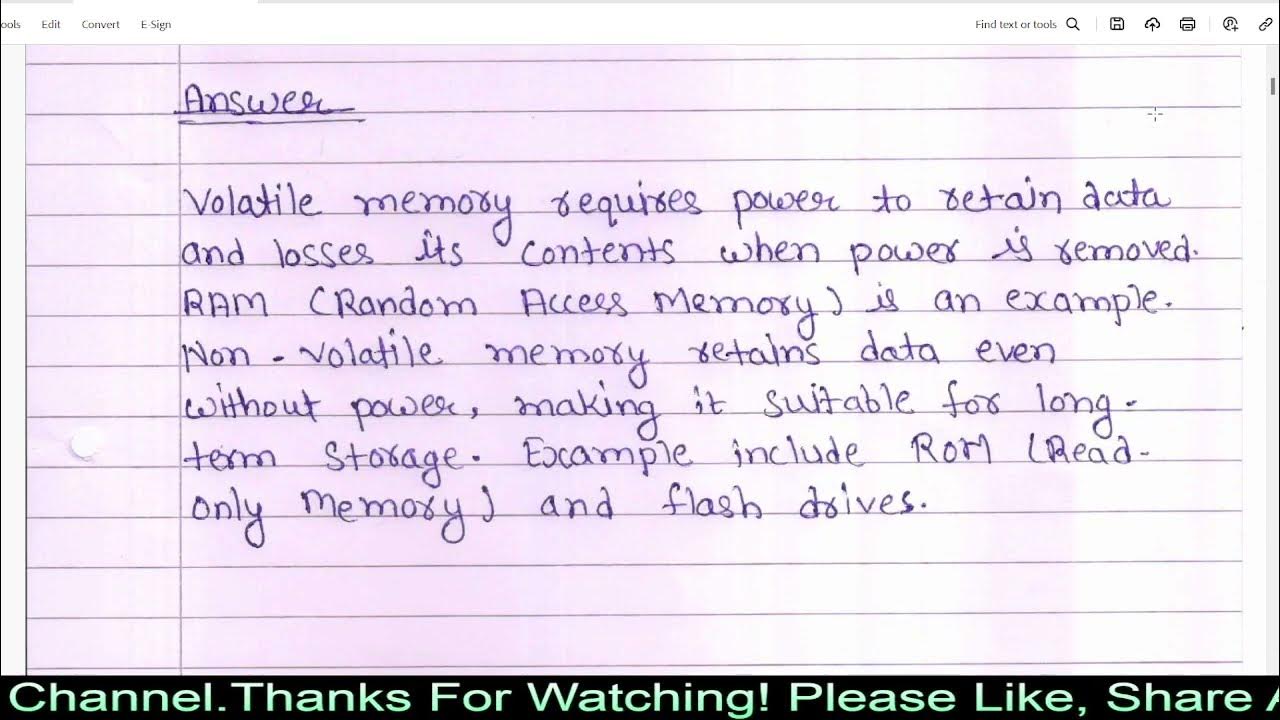 ools Edit Convert E-Sign Find text or tools
Answer
Volatile memory requires power to retain data
and losses its contents when power is removed.
RAM (Random Access Memory) is an example.
Non-volatile memory retains data even
without power, making it suitable for long-
term storage. Example include ROM (Read-
only Memory) and flash drives.
Channel.Thanks For Watching! Please Like, Share A